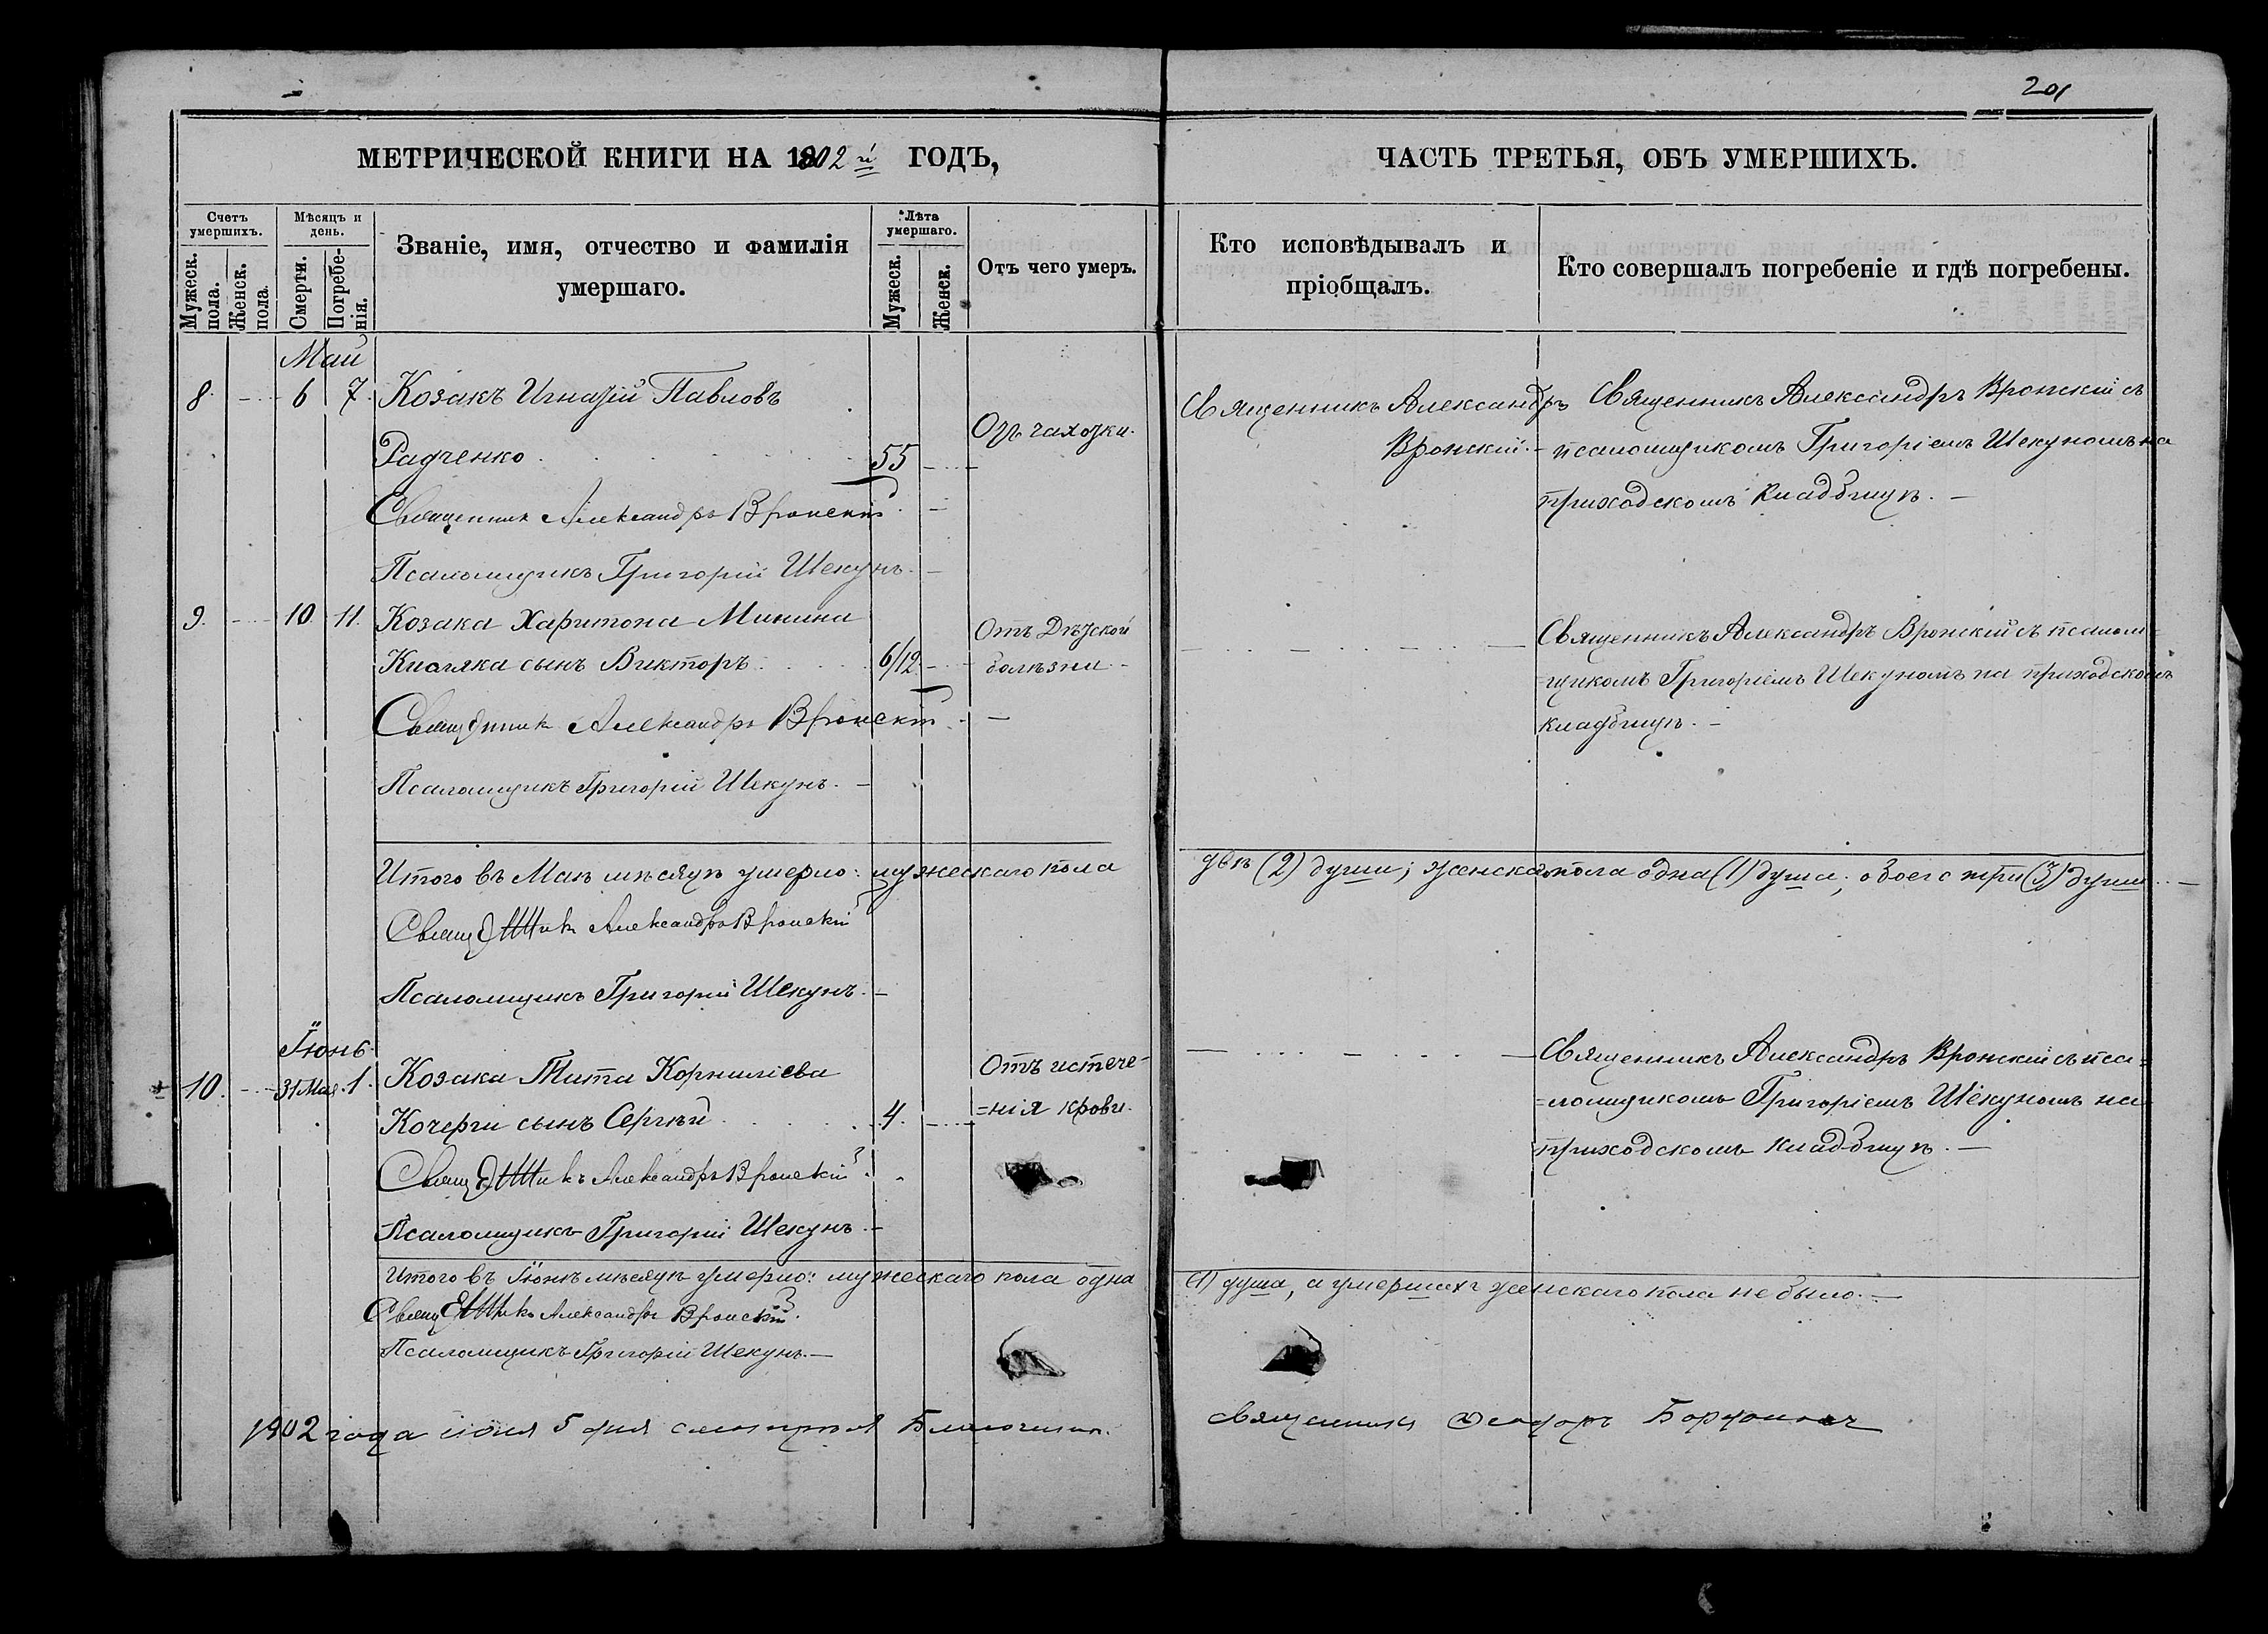 201
МЕТРИЧЕСКОЙ КНИГИ НА 1902й ГОДЪ,
ЧАСТЬ ТРЕТЬЯ, ОБЪ УМЕРШИХЪ.
Счетъ умершихъ.
Мужеск. пола.
Женск. пола.
Мѣсяцъ и день.
Смерти.
Погребенія.
Званіе, имя, отчество и фамилія
умершаго.
Лѣта умершаго.
Мужеск.
Женск.
Отъ чего умеръ.
Кто исповѣдывалъ и
пріобщалъ.
Кто совершалъ погребеніе и гдѣ погребены.
Май
8. 6 7. Козакъ Игнатій Павловъ
Радченко 55
Отъ чахотки.
Священникъ Александръ
Вронскій.
Священникъ Александръ Вронскій съ
псаломщикомъ Григоріемъ Шекуномъ на
приходскомъ кладбищѣ.
Священникъ Александръ Вронскій
Псаломщикъ Григорій Шекунъ.
9. 10 11. Козака Харитона Минина
сынъ Викторъ 6/12
Отъ Дѣтской
болѣзни
Священникъ Александръ Вронскій съ псалом=
=щикомъ Григоріемъ Шекуномъ на приходскомъ
кладбищѣ.
Священникъ Александръ Вронскій
Псаломщикъ Григорій Шекунъ.
Итого въ Маѣ мѣсяцѣ умерло: мужескаго пола двѣ (2) души; женскаго пола одна (1) душа; обоего три (3) души.
Священникъ Александръ Вронскій
Псаломщикъ Григорій Шекунъ.
Іюнь
10. 31 Мая. 1. Козака Тита Корниліева
Кочерги сынъ Сергѣй 4.
Отъ истече-
=нія крови.
Священникъ Александръ Вронскій съ пса=
=ломщикомъ Григоріемъ Шекуномъ на
приходскомъ кладбищѣ.
Священникъ Александръ Вронскій
Псаломщикъ Григорій Шекунъ.
Итого въ Іюнѣ мѣсяцѣ умерло: мужескаго пола одна (1) душа, а умершихъ женскаго пола не было.
Священникъ Александръ Вронскій.
Псаломщикъ Григорій Шекунъ.
1902 года іюля 5 дня смотрѣлъ Благочинн.
священникъ Ѳеодоръ